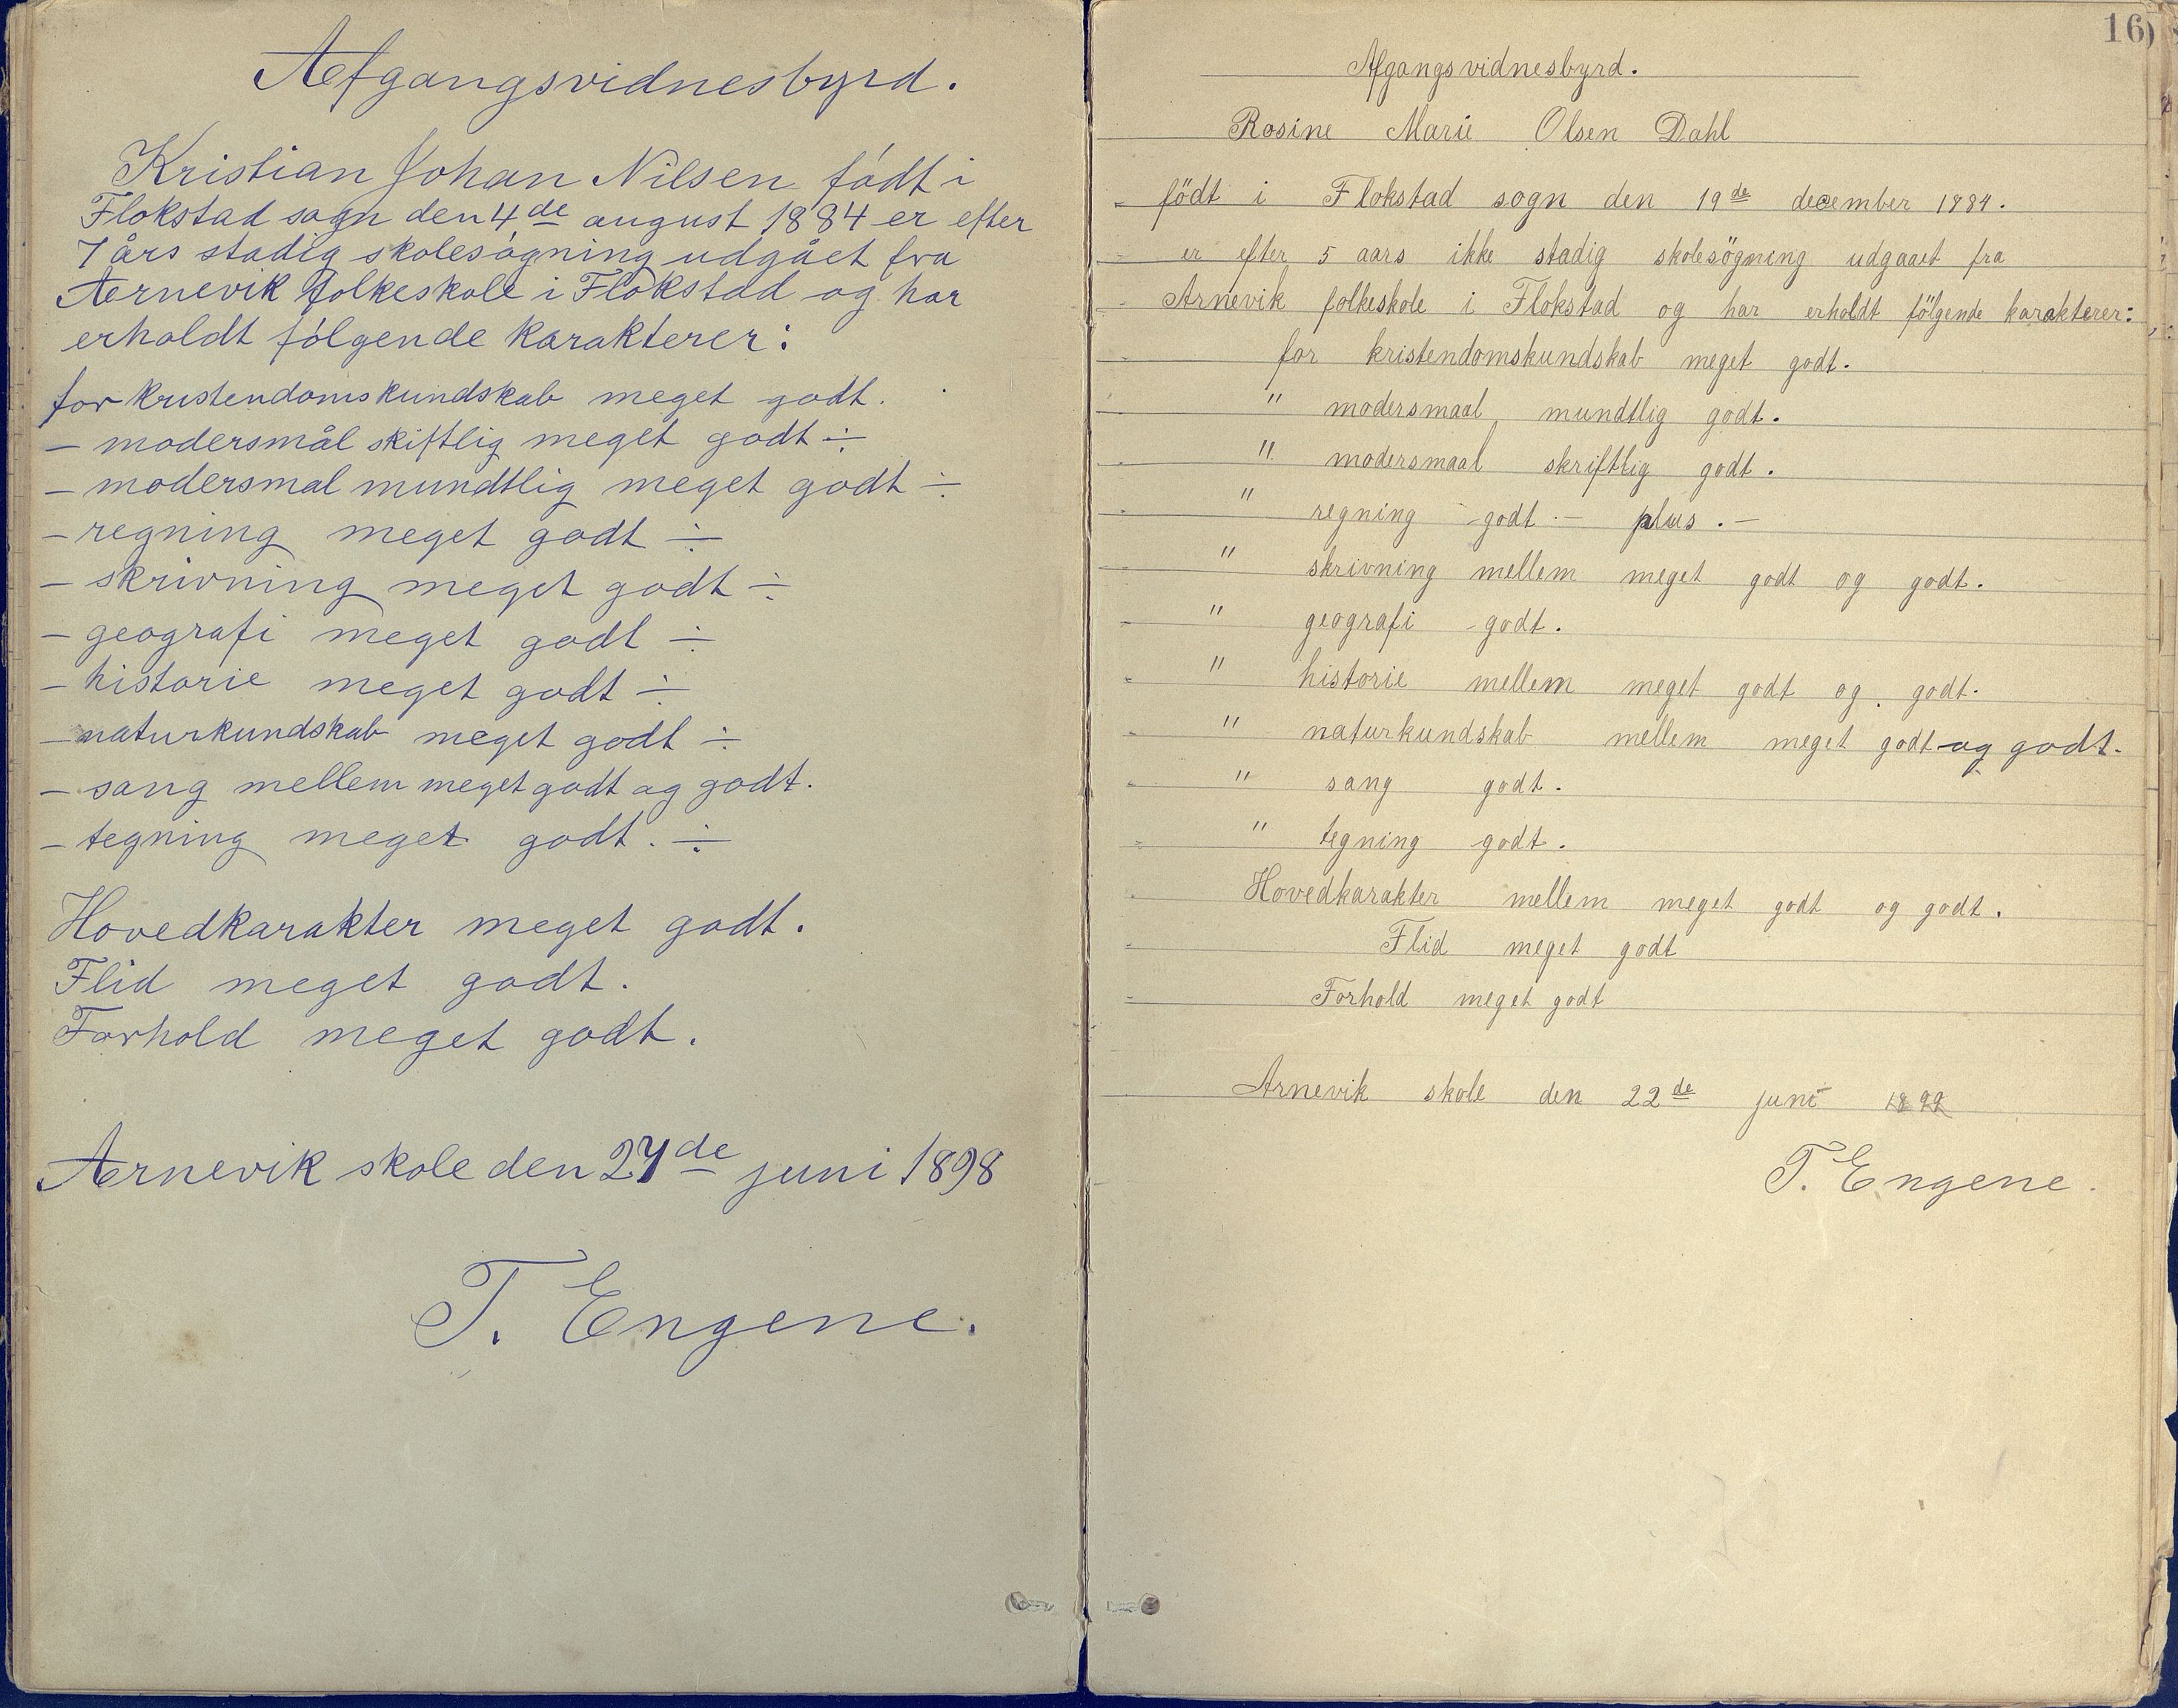 Afgangsvidnesbyrd.
Kristian Johan Nilsen född i
Flokstad sogn den 4de august 1884 er efter
7 års stadig skolesøgning udgået fra
Arnevik folkeskole i Flokstad og har
erholdt følgende karakterer:
for kristendomskundskab meget godt.
— modersmål skiftlig meget godt ÷
— modersmal mundtlig meget godt ÷
— regning meget godt ÷
— skrivning meget godt ÷
— geografi meget godt ÷
— historie meget godt ÷
— naturkundskab meget godt ÷
— sang mellem meget godt og godt.
— tegning meget godt. ÷
Hovedkarakter meget godt.
Flid meget godt.
Forhold meget godt.
Arnevik skole den 27de juni 1898
T. Engene.
16)
Afgangsvidnesbyrd.
Rosine Marie Olsen Dahl
födt i Flokstad sogn den 19de december 1884.
er efter 5 aars ikke stadig skolesögning udgaaet fra
Arnevik folkeskole i Flokstad og har erholdt fölgende karakterer:
for kristendomskundskab meget godt.
" modersmaal mundtlig godt.
" modersmaal skriftlig godt.
" regning godt — plus. —
" skrivning mellem meget godt og godt.
" geografi godt.
" historie mellem meget godt og godt.
" naturkundskab mellem meget godt og godt.
" sang godt.
" tegning godt.
Hovedkarakter mellem meget godt og godt.
Flid meget godt
Forhold meget godt
Arnevik skole den 22de juni 1899
T. Engene.